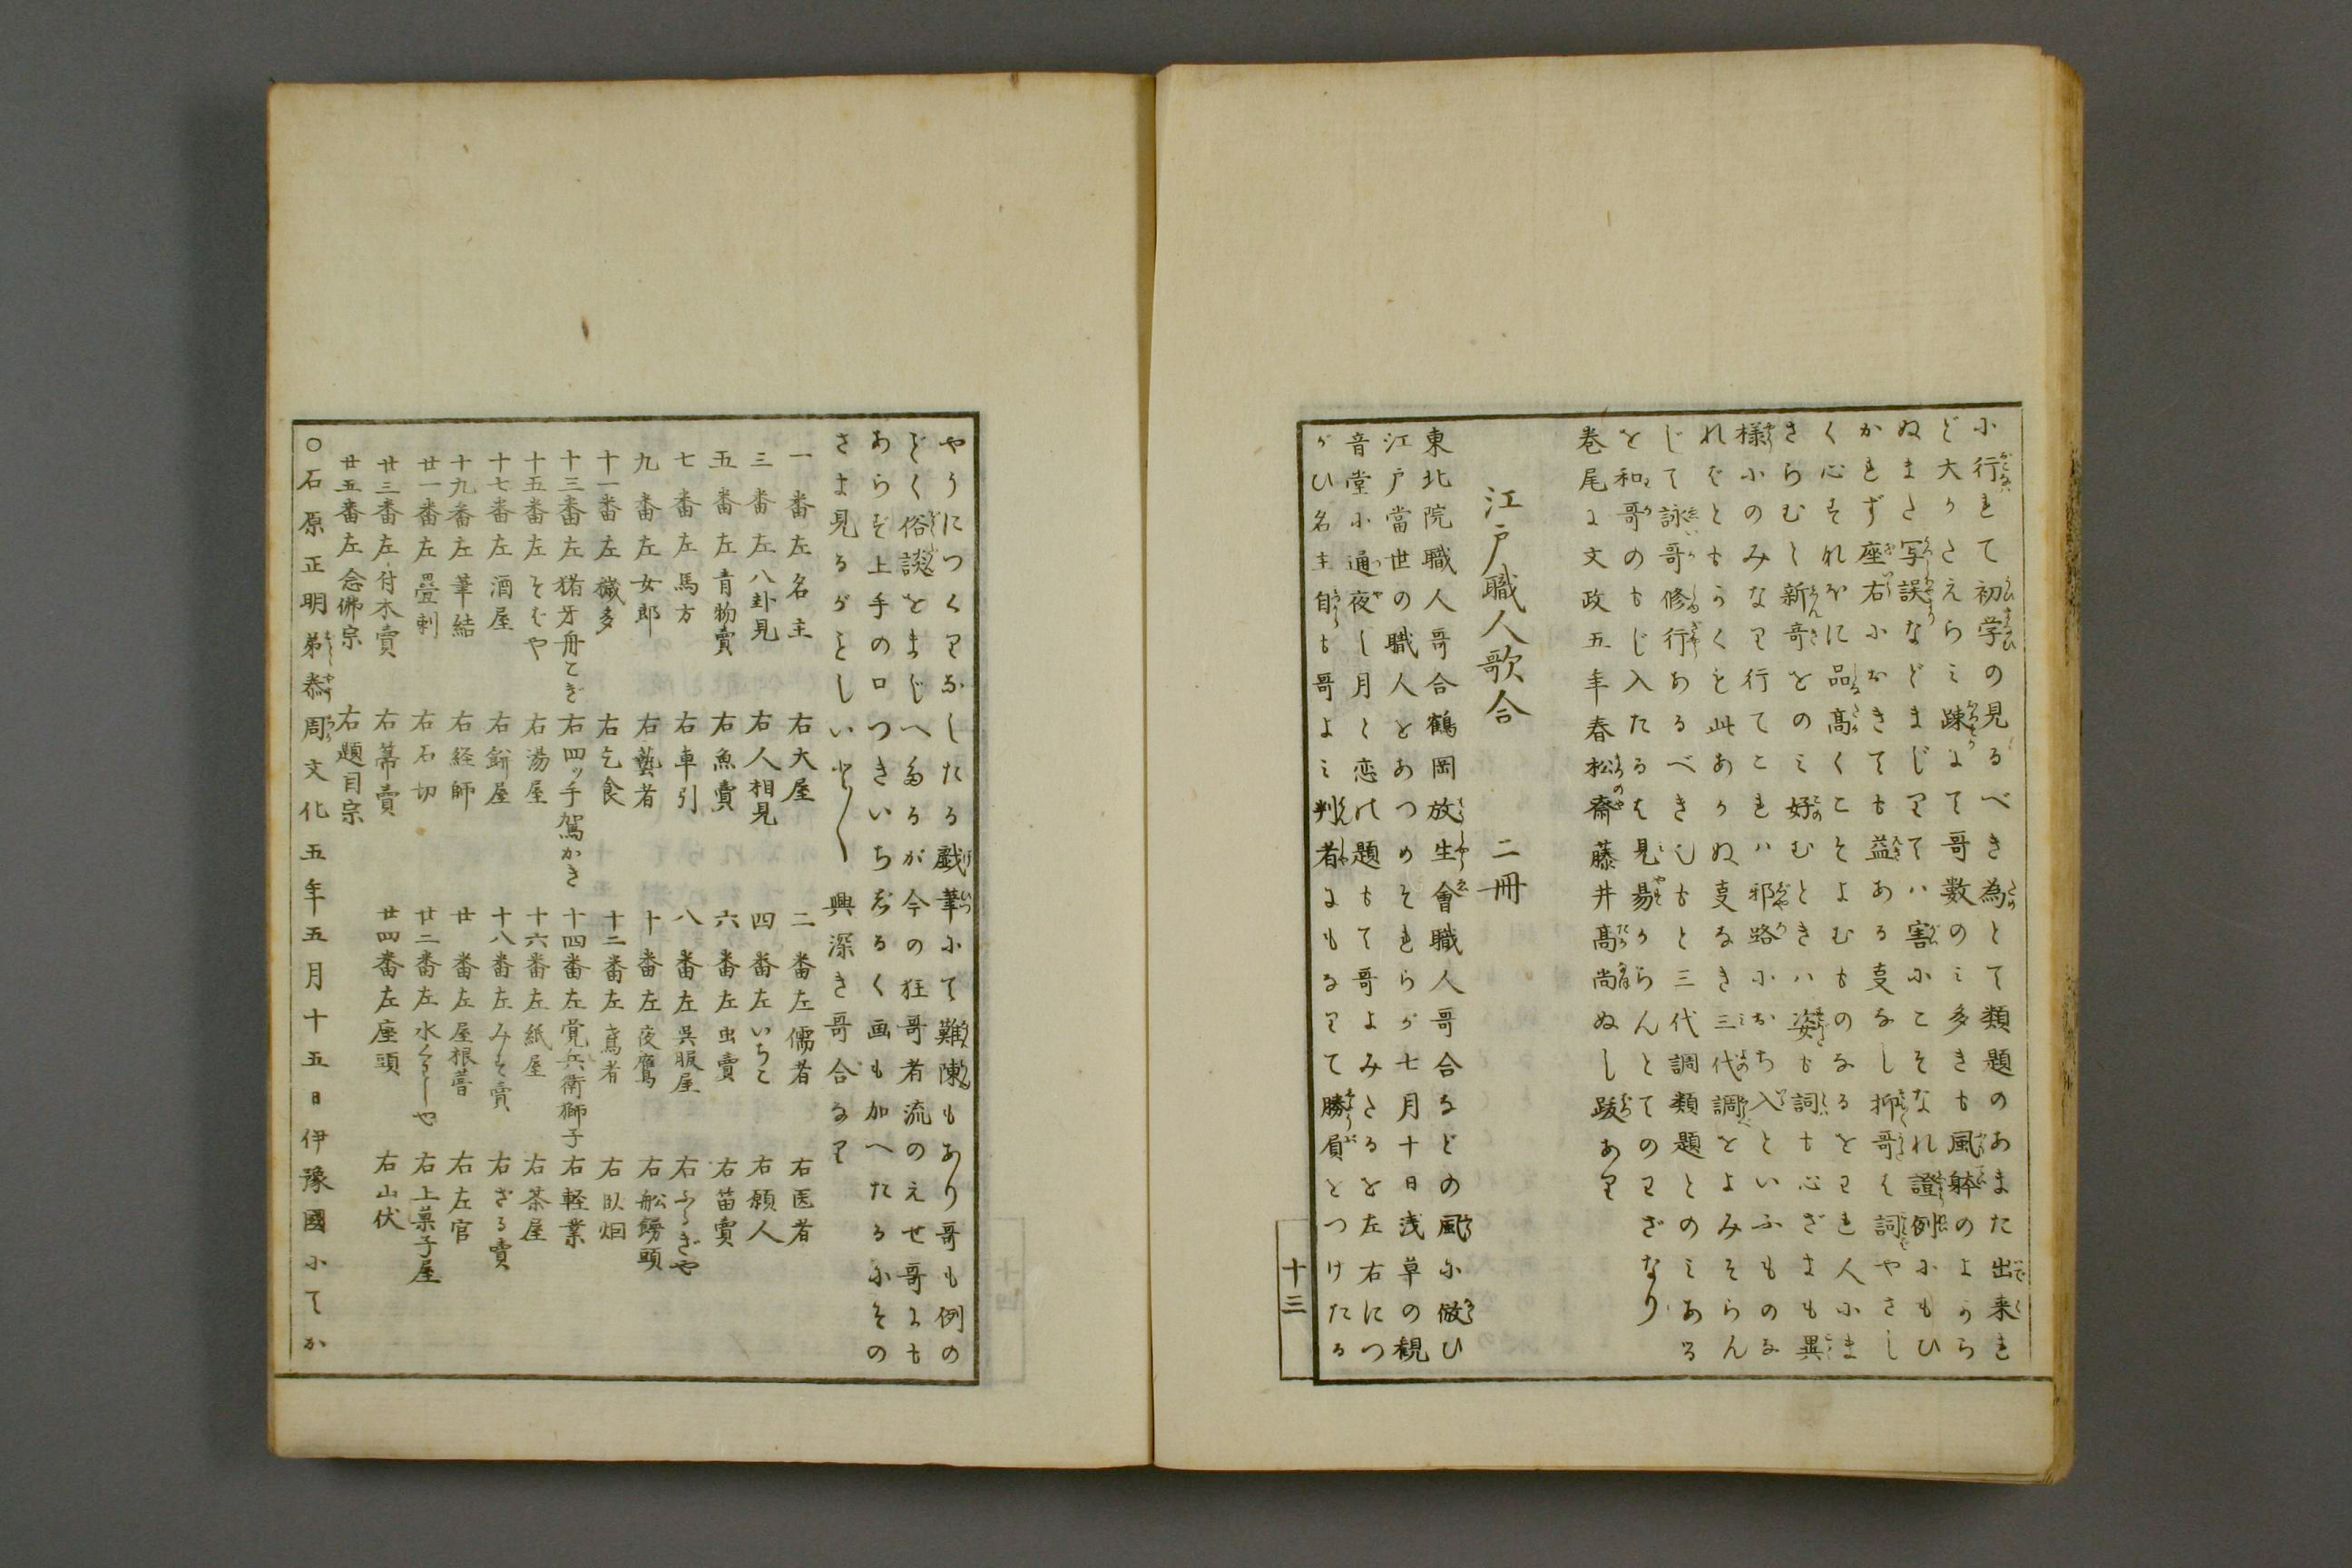 に行れて初学の見るべき為とて類題のあまた出来れ
ど大かたえらみ疎にて哥数のみ多きも風躰のよから
ぬまた写誤などまじりてハ害にこそなれ證例にもひ
かれず座右におきても益ある事なし抑哥は詞やさし
く心すなほに品高くこそよむものなるをされ人にま
さらむと新奇をのみ好むときハ姿も詞も心ざまも異
様にのみなり行てこれハ邪路におち入といふものな
れどともかくも此あかぬ事なき三代調をよみそらん
じて詠哥修行あるべきしもと三代調類題とのみある
を和哥のもじ入たるは見易からんとてのわざなり
巻尾に文政五年春松斎藤井高尚ぬし跋あり
江戸職人歌合 二冊
東北院職人哥合鶴岡放生會職人哥合などの風に倣ひ
江戸當世の職人をあつめそれらが七月十日浅草の観
音堂に通夜し月と恋の題もて哥よみたるを左右につ
がひ名主自も哥よみ判者にもなりて勝負をつけたる
十三
やうにつくりなしたる戯筆にて難陳もあり哥も例の
ごく俗談をまじへたるが今の狂哥者流のえせ哥にも
あらず上手の口つきいちじるく画も加へたるにその
さま見るがごとしいと〱興深き哥合なり
一番左名主 右大屋 二番左儒者 右医者
三番左八卦見 右人相見 四番左いちこ 右願人
五番左青物賣 右魚賣 六番左虫賣 右苗賣
七番左馬方 右車引 八番左呉服屋 右ふるぎや
九番左女郎 右藝者 十番左夜鷹 右舩饅頭
十一番左穢多 右乞食 十二番左鳶者 右臥烟
十三番左猪牙舟こぎ 右四ッ手駕かき 十四番左覚兵衛獅子 右軽業
十五番左そばや 右湯屋 十六番左紙屋 右茶屋
十七番左酒屋 右餅屋 十八番左みそ賣 右ざる賣
十九番左筆結 右経師 廿番左屋根葺 右左官
廿一番左畳刺 右石切 廿二番左水くわしや 右上菓子屋
廿三番左付木賣 右箒賣 廿四番左座頭 右山伏
廿五番左念佛宗 右題目宗
○石原正明弟泰周文化五年五月十五日伊豫國にてか